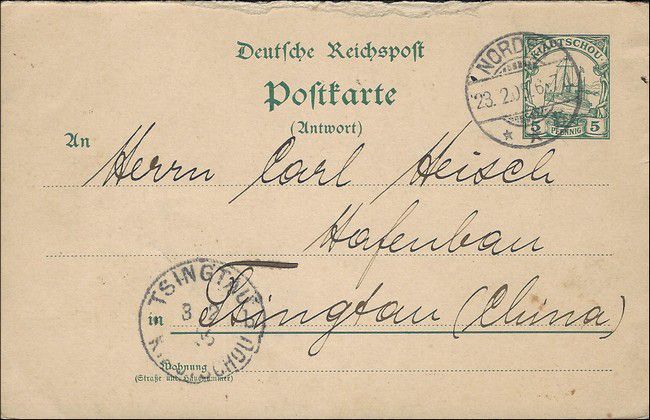 Deutsche Reichspost
KIAUTSCHOU
NORD
Postkarte
23.2.0
6-7
(Antwort)
5 PFENNIG 5
An
Herrn Carl Heisch
Hafenbau
TSINGTAU
in Tsingtau (China)
Wohnung
(Straße und Hausnummer)